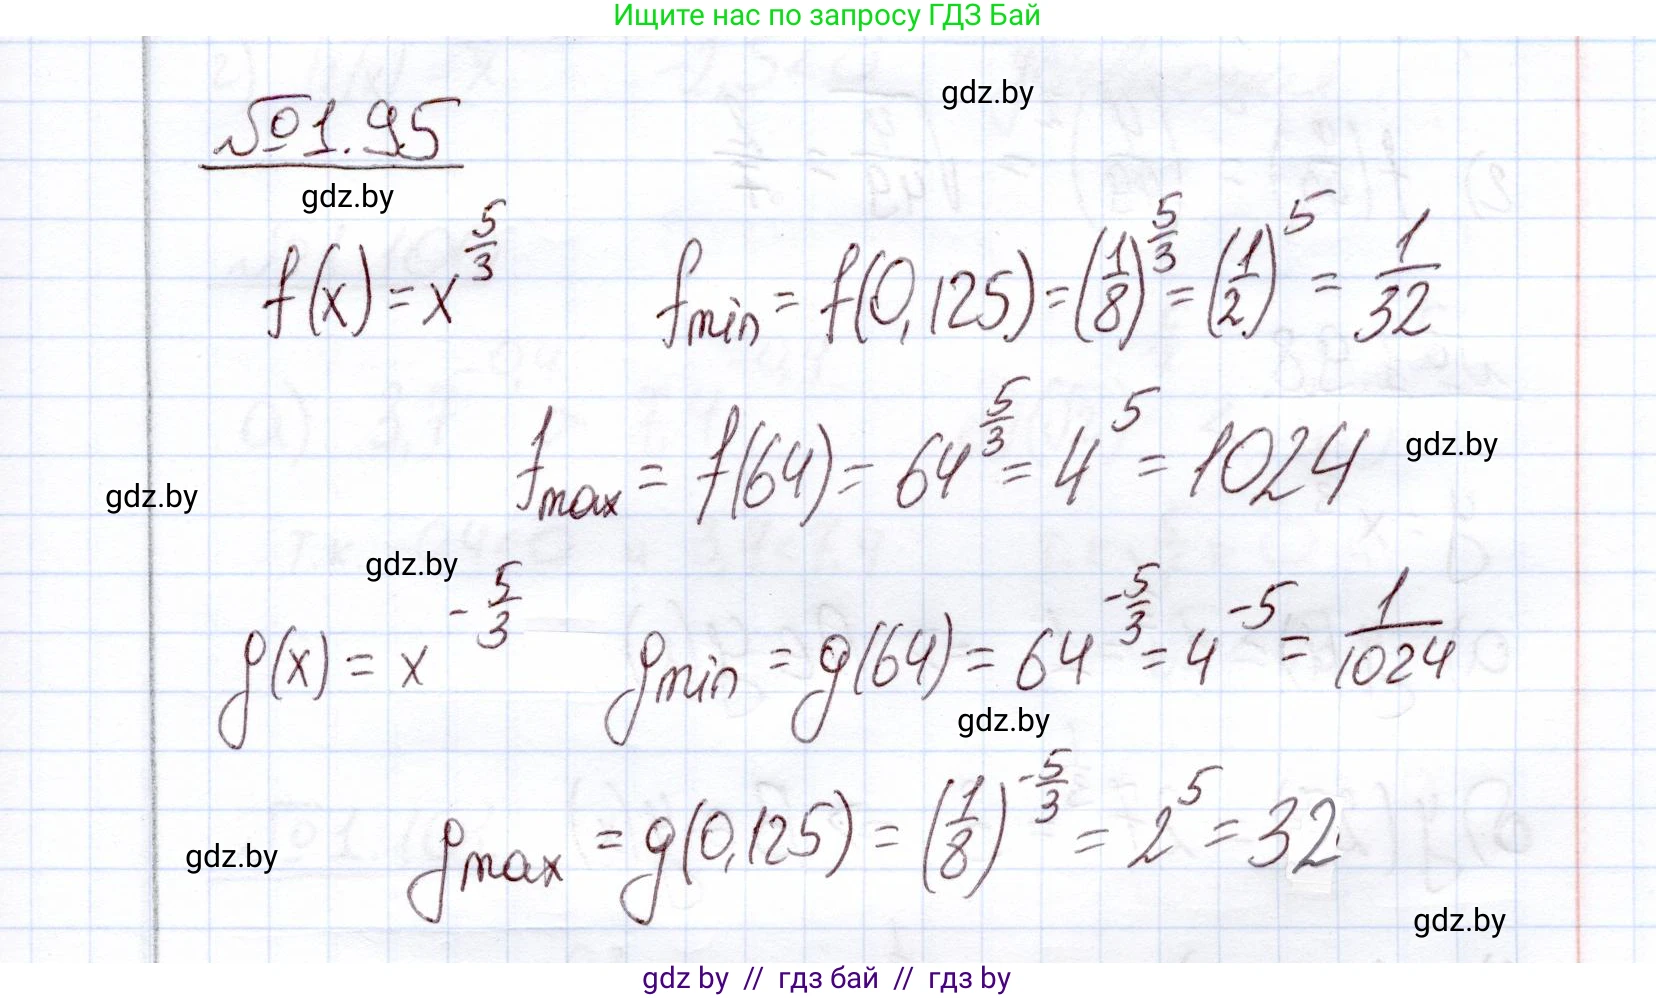 Ищите нас по запросу ГДЗ Бай
gdz.by
№1.95
gdz.by
f(x) = x^{5/3} f_{min} = f(0,125) = (1/8)^{5/3} = (1/2)^5 = 1/32
f_{max} = f(64) = 64^{5/3} = 4^5 = 1024
gdz.by
gdz.by
gdz.by
g(x) = x^{-5/3} g_{min} = g(64) = 64^{-5/3} = 4^{-5} = 1/1024
gdz.by
g_{max} = g(0,125) = (1/8)^{-5/3} = 2^5 = 32
gdz.by
gdz.by
gdz by // гдз бай // гдз by